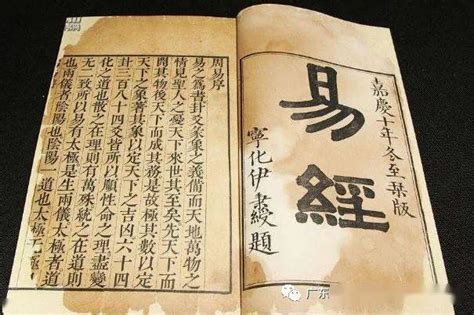 嘉慶十年冬至栞版
易經
寧化伊秉綬題
周易序
易之為書卦爻彖象之義備而天地萬物之
情見聖人之憂天下來世其至矣先天下而
開其物後天下而成其務是故極其數以定
天下之象著其象以定天下之吉凶六十四
卦三百八十四爻皆所以順性命之理盡變
化之道也散之在理則有萬殊統之在道則
无二致所以易有太極是生兩儀太極者道
也兩儀者陰陽也陰陽一道也太極无極
广东